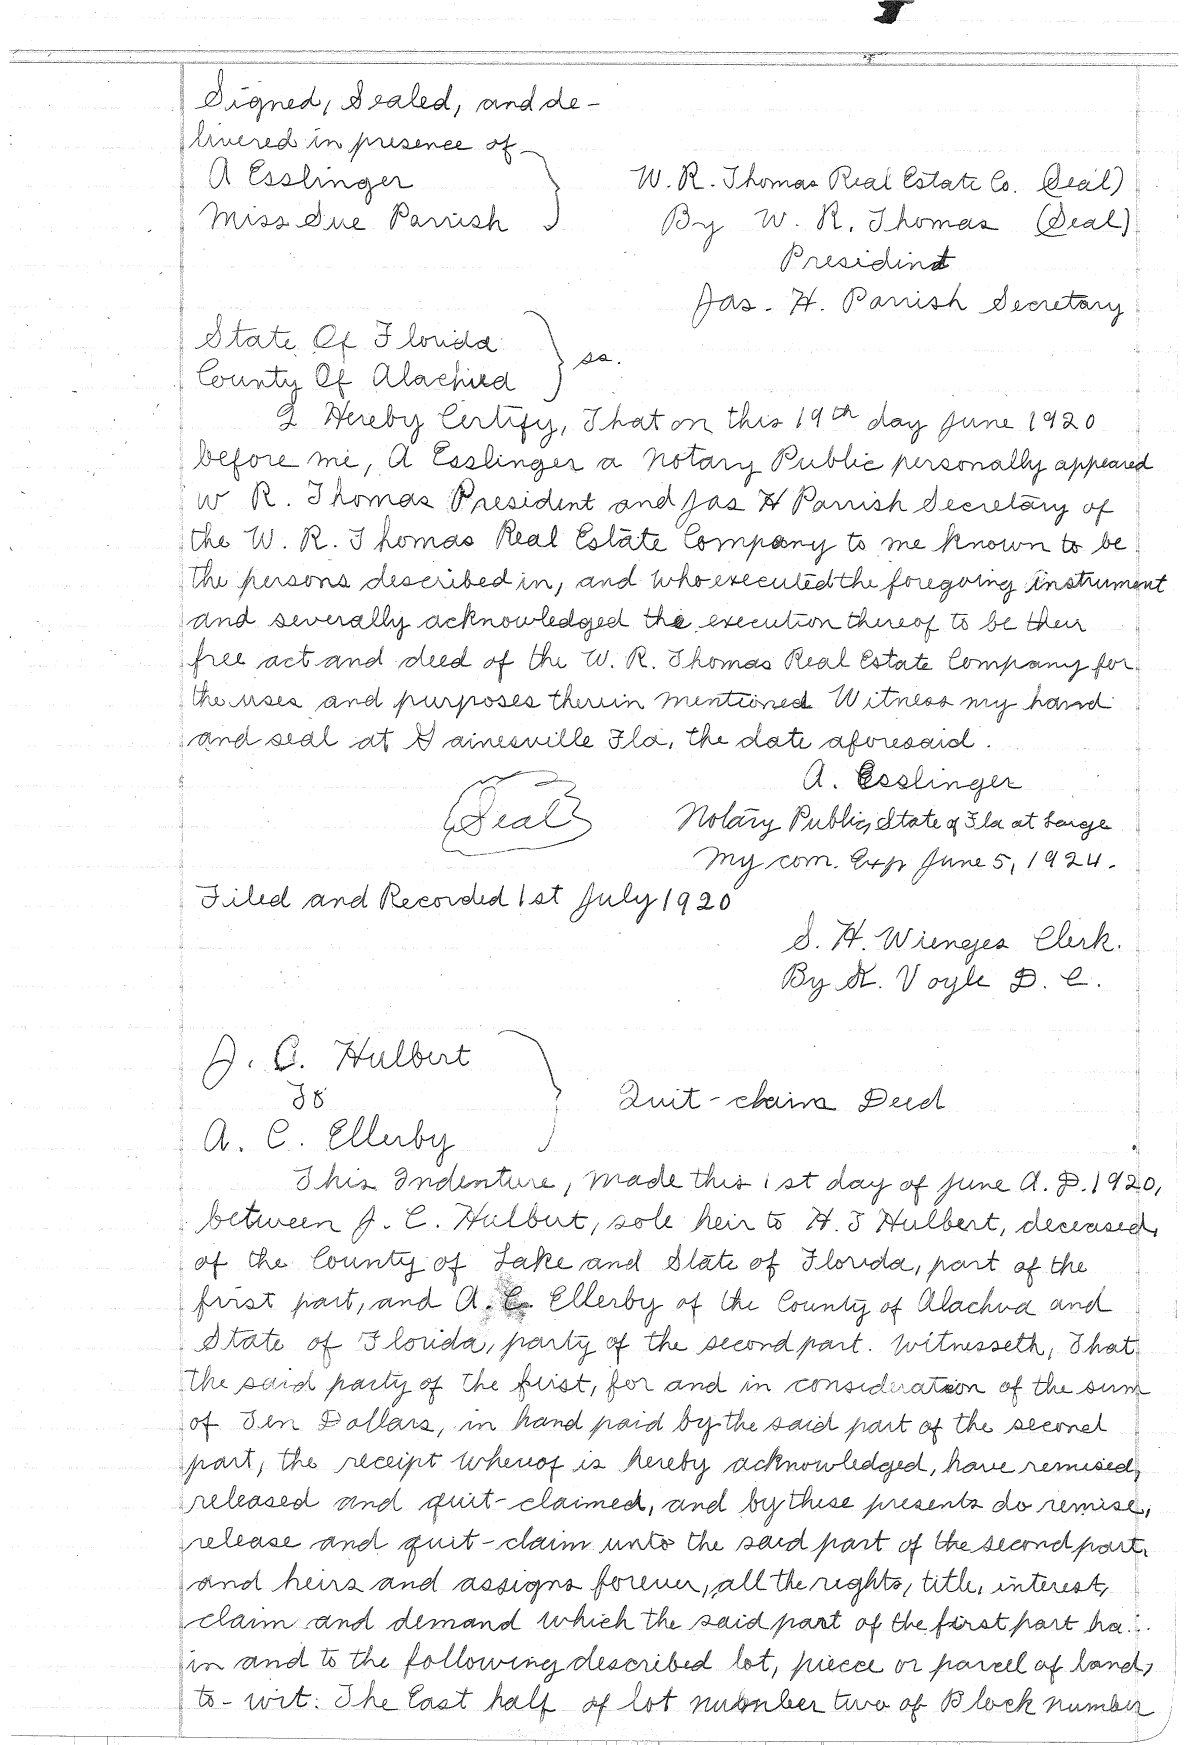 Signed, Sealed, and de-
livered in presence of
A Esslinger
Miss Sue Parrish
W. R. Thomas Real Estate Co. (Seal)
By W. R. Thomas (Seal)
Presidint
Jas. H. Parrish Secretary
State Of Florida
County Of Alachua
ss.
I Hereby Certify, That on this 19th day June 1920
before me, A Esslinger a Notary Public personally appeared
W R. Thomas President and Jas H Parrish Secretary of
the W. R. Thomas Real Estate Company to me known to be
the persons described in, and who executed the foregoing instrument
and severally acknowledged the execution thereof to be their
free act and deed of the W. R. Thomas Real Estate Company for
the uses and purposes therein mentioned Witness my hand
and seal at Gainesville Fla, the date aforesaid.
A. Esslinger
Seal
Notary Public, State of Fla at Large
My com. Exp June 5, 1924.
Filed and Recorded 1st July 1920
S. H. Wienges Clerk.
By K. Voyle D. C.
J. C. Hulbert
To
A. C. Ellerby
Quit-claim Deed
This Indenture, Made this 1st day of June A. D. 1920,
between J. C. Hulbert, sole heir to H. T Hulbert, deceased,
of the County of Lake and State of Florida, part of the
first part, and A. C. Ellerby of the County of Alachua and
State of Florida, party of the second part. Witnesseth, That
the said party of the first, for and in consideration of the sum
of Ten Dollars, in hand paid by the said part of the second
part, the receipt whereof is hereby acknowledged, have remised,
released and quit-claimed, and by these presents do remise,
release and quit-claim unto the said part of the second part,
and heirs and assigns forever, all the rights, title, interest,
claim and demand which the said part of the first part ha..
in and to the following described lot, piece or parcel of land,
to-wit: The East half of lot number two of Block number